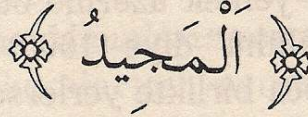 اَلْمَجِيدُ